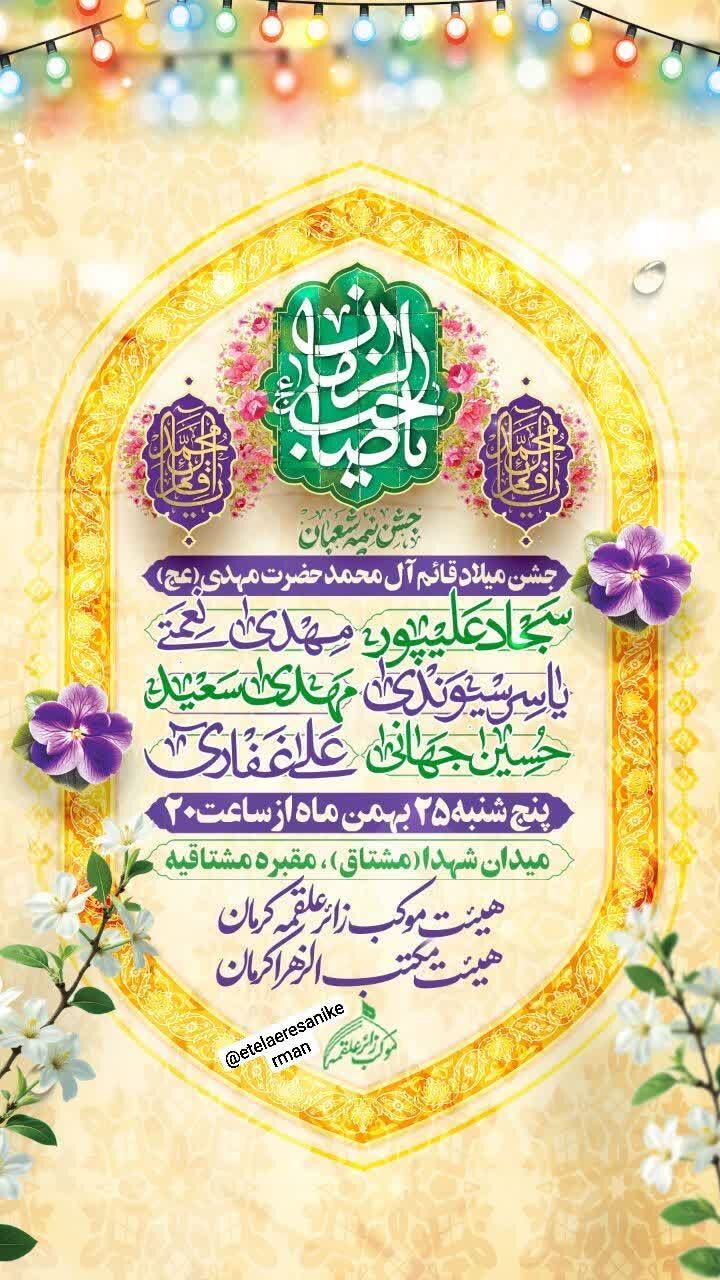 یا صاحب الزمان عج
یا قائم آل محمد
یا قائم آل محمد
جشن نیمه شعبان
جشن میلاد قائم آل محمد حضرت مهدی (عج)
سجاد علیپور مهدی نعمتی
یاسر سیوندی مهدی سعید
حسین جهانی علی غفاری
پنج شنبه ۲۵ بهمن ماه از ساعت ۲۰
میدان شهدا (مشتاق)، مقبره مشتاقیه
هیئت موکب زائر علقمه کرمان
هیئت مکتب الزهرا کرمان
@etelaeresanike
rman
موکب زائر علقمه